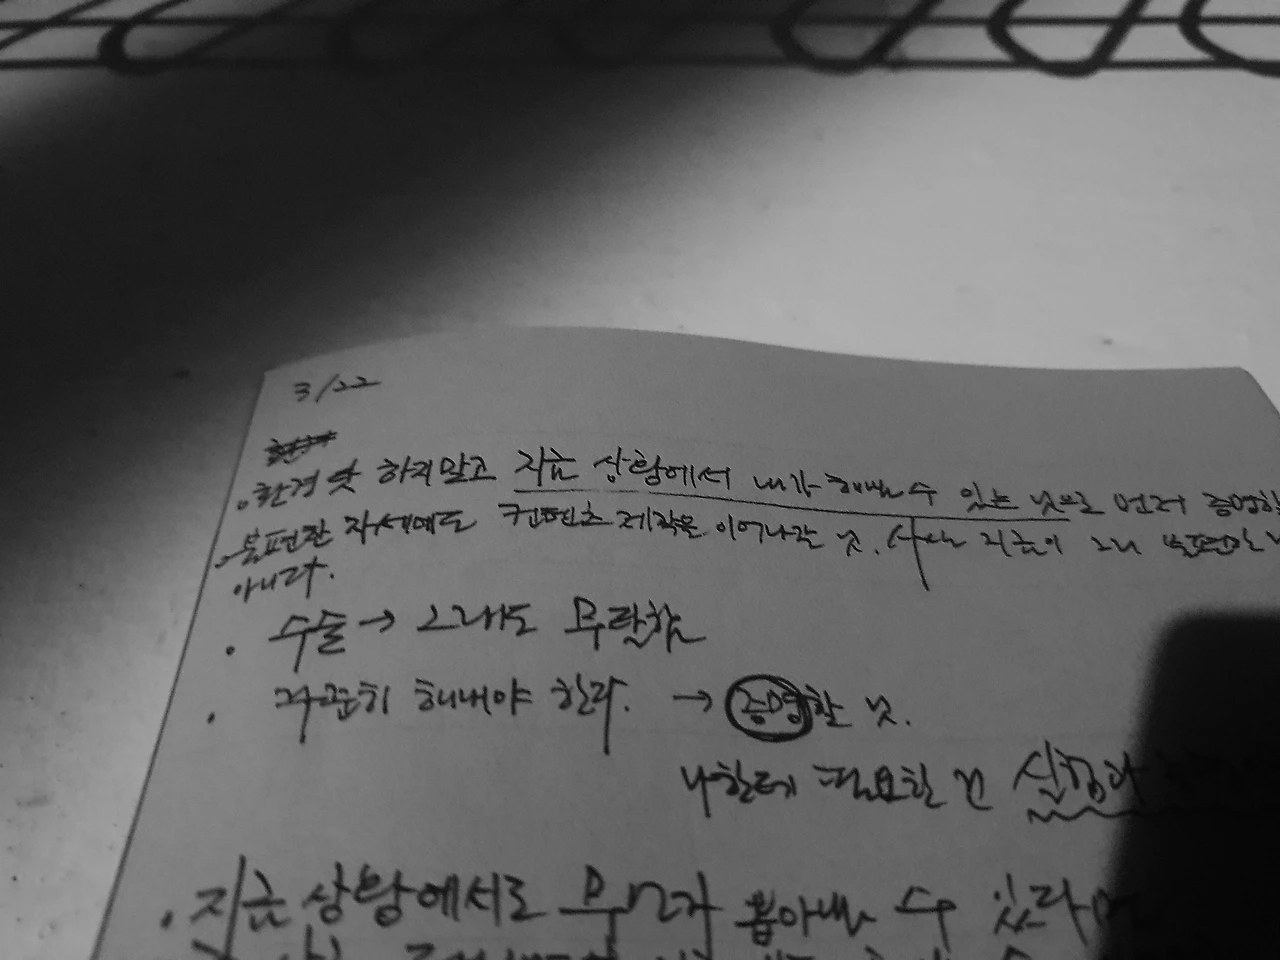 3/22
환경 탓 하지말고 지금 상황에서 내가 해낼 수 있는 것으로 먼저 증명할
불편한 자세에도 컨텐츠 제작을 이어나갈 것. 사실 지금이 그리 불편한
아니다.
수술 → 그래도 무탈함
꾸준히 해내야 한다. → 증명할 것.
나한테 필요한 건 실험과
지금 상황에서도 무언가 뽑아낼 수 있다면